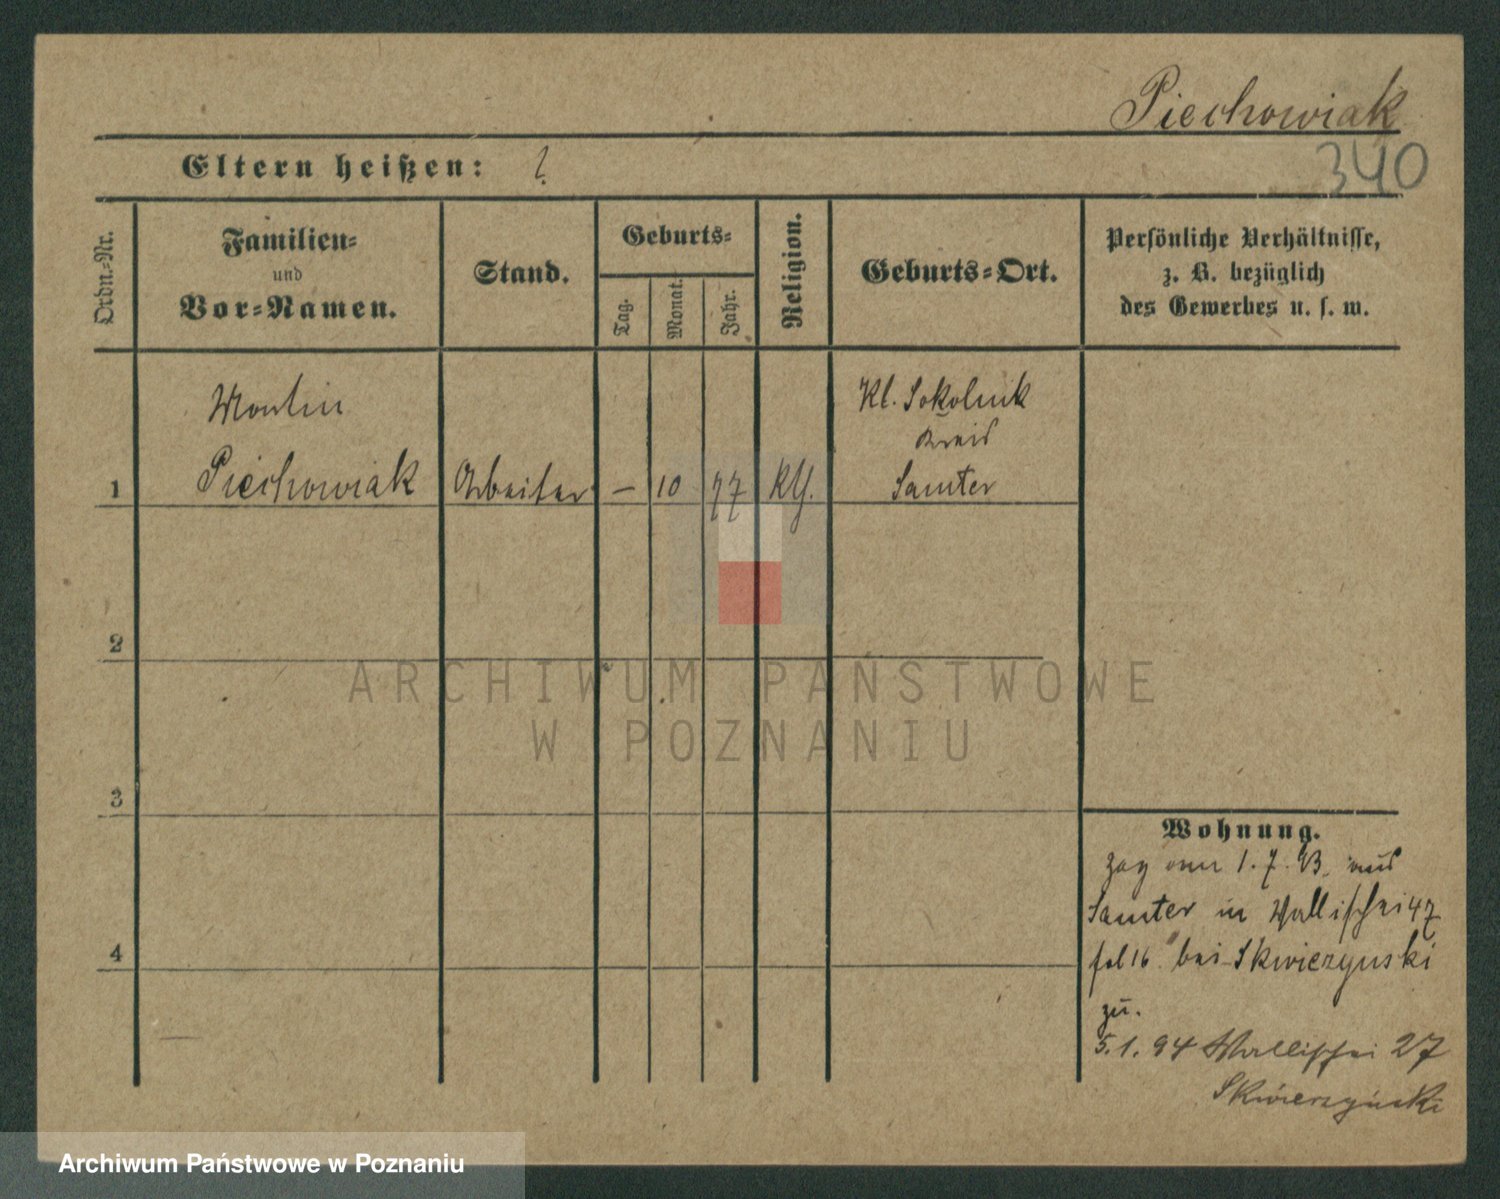 Piechowiak
340
Eltern heißen: ?
Ordn.-Nr.
Familien-
und
Vor-Namen.
Stand.
Geburts-
Tag.
Monat.
Jahr.
Religion.
Geburts-Ort.
Persönliche Verhältnisse,
z. B. bezüglich
des Gewerbes u. s. w.
Martin
Kl. Sokolnik
Kreis
1 Piechowiak Arbeiter — 10 77 Kth. Samter
2
3
4
Wohnung.
zog am 1. 7. 93. aus
Samter in Wallischei 47
bei Skwierzynski
zu.
5. 1. 94 Wallischei 27
Skwierzyński
ARCHIWUM PAŃSTWOWE
W POZNANIU
Archiwum Państwowe w Poznaniu